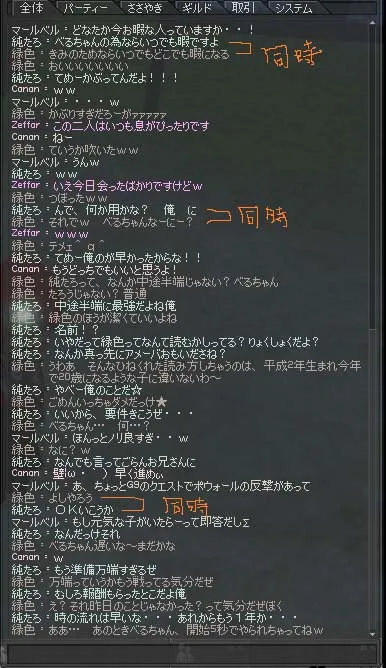 全体 パーティー ささやき ギルド 取引 システム
マールベル：どなたか今お暇な人っていますか・・！
純たろ：べるちゃんの為ならいつでも暇ですよ
緑色：きみのためならいつでもどこでも暇になる
同時
緑色：おいいいいいいい
純たろ：てめーかぶってんだよ！！！
Canan：ｗｗ
マールベル：・・・ｗ
緑色：かぶりすぎだろーがァァァァァ
Zeffar：この二人はいつも息がぴったりです
Canan：ねー
緑色：ていうか吹いたｗｗ
マールベル：うんｗ
純たろ：ｗｗ
Zeffar：いえ今日会ったばかりですけどｗ
緑色：つぼったｗｗ
純たろ：んで、何か用かな？ 俺 に
緑色：それでｗ べるちゃんなーにー？
同時
Zeffar：ｗｗｗ
緑色：テメェ＾ｑ＾
純たろ：てめー俺のが早かったからな！！
Canan：もうどっちでもいいと思うよ！
緑色：純たろって、なんか中途半端じゃない？べるちゃん
緑色：たろうじゃない？普通
純たろ：中途半端に最強だよね俺
緑色：緑色のほうが潔くていいよね
純たろ：名前！？
純たろ：いやだって緑色ってなんて読むかしってる？りょくしょくだよ？
純たろ：なんか真っ先にアメーバおもいださね？
緑色：うわあ そんなひねくれた読み方しちゃうのは、平成2年生まれ今年で20歳になるような子に違いないわ～
純たろ：やべー俺のことだ☆
緑色：ごめんいっちゃダメだっけ★
純たろ：いいから、要件きこうぜ・・・
緑色：べるちゃん… 何…？
マールベル：ほんっとノリ良すぎ・・ｗ
緑色：なに？ｗ
純たろ：なんでも言ってごらんお兄さんに
Canan：壁(ω・ ) 早く進めぃ
マールベル：あ、ちょっとG9のクエストでポウォールの反撃があって
緑色：よしやろう
純たろ：ＯＫいこうか
同時
マールベル：もし元気な子がいたらーって即答だしΣ
純たろ：なんだっけそれ
緑色：べるちゃん遅いな～まだかな
Canan：ｗ
純たろ：もう準備万端すぎるぜ
緑色：万端ていうかもう戦ってる気分だぜ
純たろ：むしろ報酬もらったとこだよ俺
緑色：え？それ昨日のことじゃなかった？って気分だぜぼく
純たろ：時の流れは早いな・・・あれからもう１年か・・・
緑色：ああ… あのときべるちゃん、開始5秒でやられちゃってねｗ